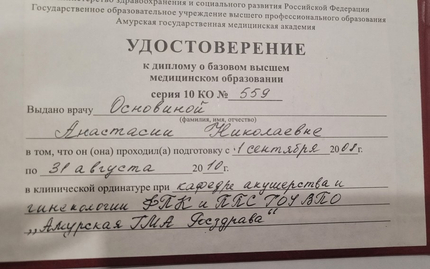 Министерство здравоохранения и социального развития Российской Федерации
Государственное образовательное учреждение высшего профессионального образования
Амурская государственная медицинская академия
УДОСТОВЕРЕНИЕ
к диплому о базовом высшем
медицинском образовании
серия 10 КО № 559
Выдано врачу Основиной
(фамилия, имя, отчество)
Анастасии Николаевне
в том, что он (она) проходил(а) подготовку с 1 сентября 2008 г.
по 31 августа 2010 г.
в клинической ординатуре при кафедре акушерства и
гинекологии ФПК и ППС ГОУ ВПО
„Амурская ГМА Росздрава“